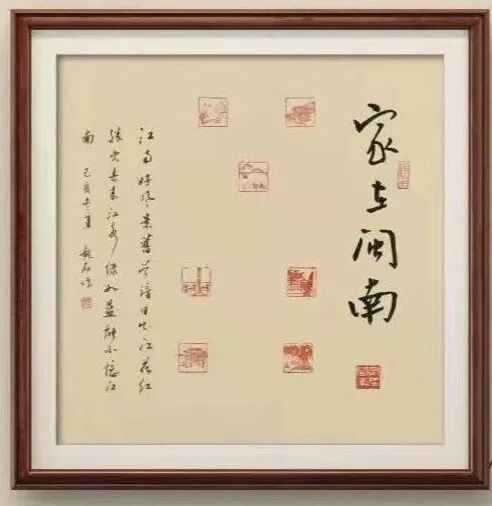 家在闽南
江南好风景舊曾谙日出江花红
勝火春来江水绿如蓝能不憶江
南 己亥冬